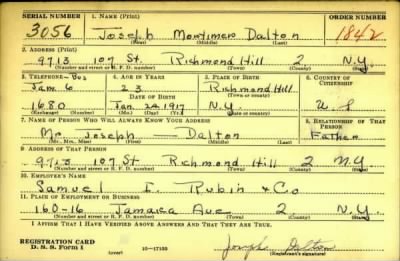 SERIAL NUMBER 1. NAME (Print) ORDER NUMBER
3056 Joseph Mortimer Dalton 1842
(First) (Middle) (Last)
2. ADDRESS (Print)
9713 107 St. Richmond Hill 2 N.Y.
(Number and street or R. F. D. number) (Town) (County) (State)
3. TELEPHONE 4. AGE IN YEARS 5. PLACE OF BIRTH 6. COUNTRY OF CITIZENSHIP
Jam 6 23 Richmond Hill
DATE OF BIRTH (Town or county)
1680 Jan. 24 1917 N.Y. U.S
(Exchange) (Number) (Mo.) (Day) (Yr.) (State or country)
7. NAME OF PERSON WHO WILL ALWAYS KNOW YOUR ADDRESS 8. RELATIONSHIP OF THAT PERSON
Mr. Joseph Dalton Father
(Mr., Mrs., Miss) (First) (Middle) (Last)
9. ADDRESS OF THAT PERSON
9713 107 St Richmond Hill 2 N.Y
(Number and street or R. F. D. number) (Town) (County) (State)
10. EMPLOYER'S NAME
Samuel I. Rubin + Co
11. PLACE OF EMPLOYMENT OR BUSINESS
160-16 Jamaica Ave 2 N.Y.
(Number and street or R. F. D. number) (Town) (County) (State)
I AFFIRM THAT I HAVE VERIFIED ABOVE ANSWERS AND THAT THEY ARE TRUE.
REGISTRATION CARD
D. S. S. Form 1 (over) Joseph Dalton
(Registrant's signature)